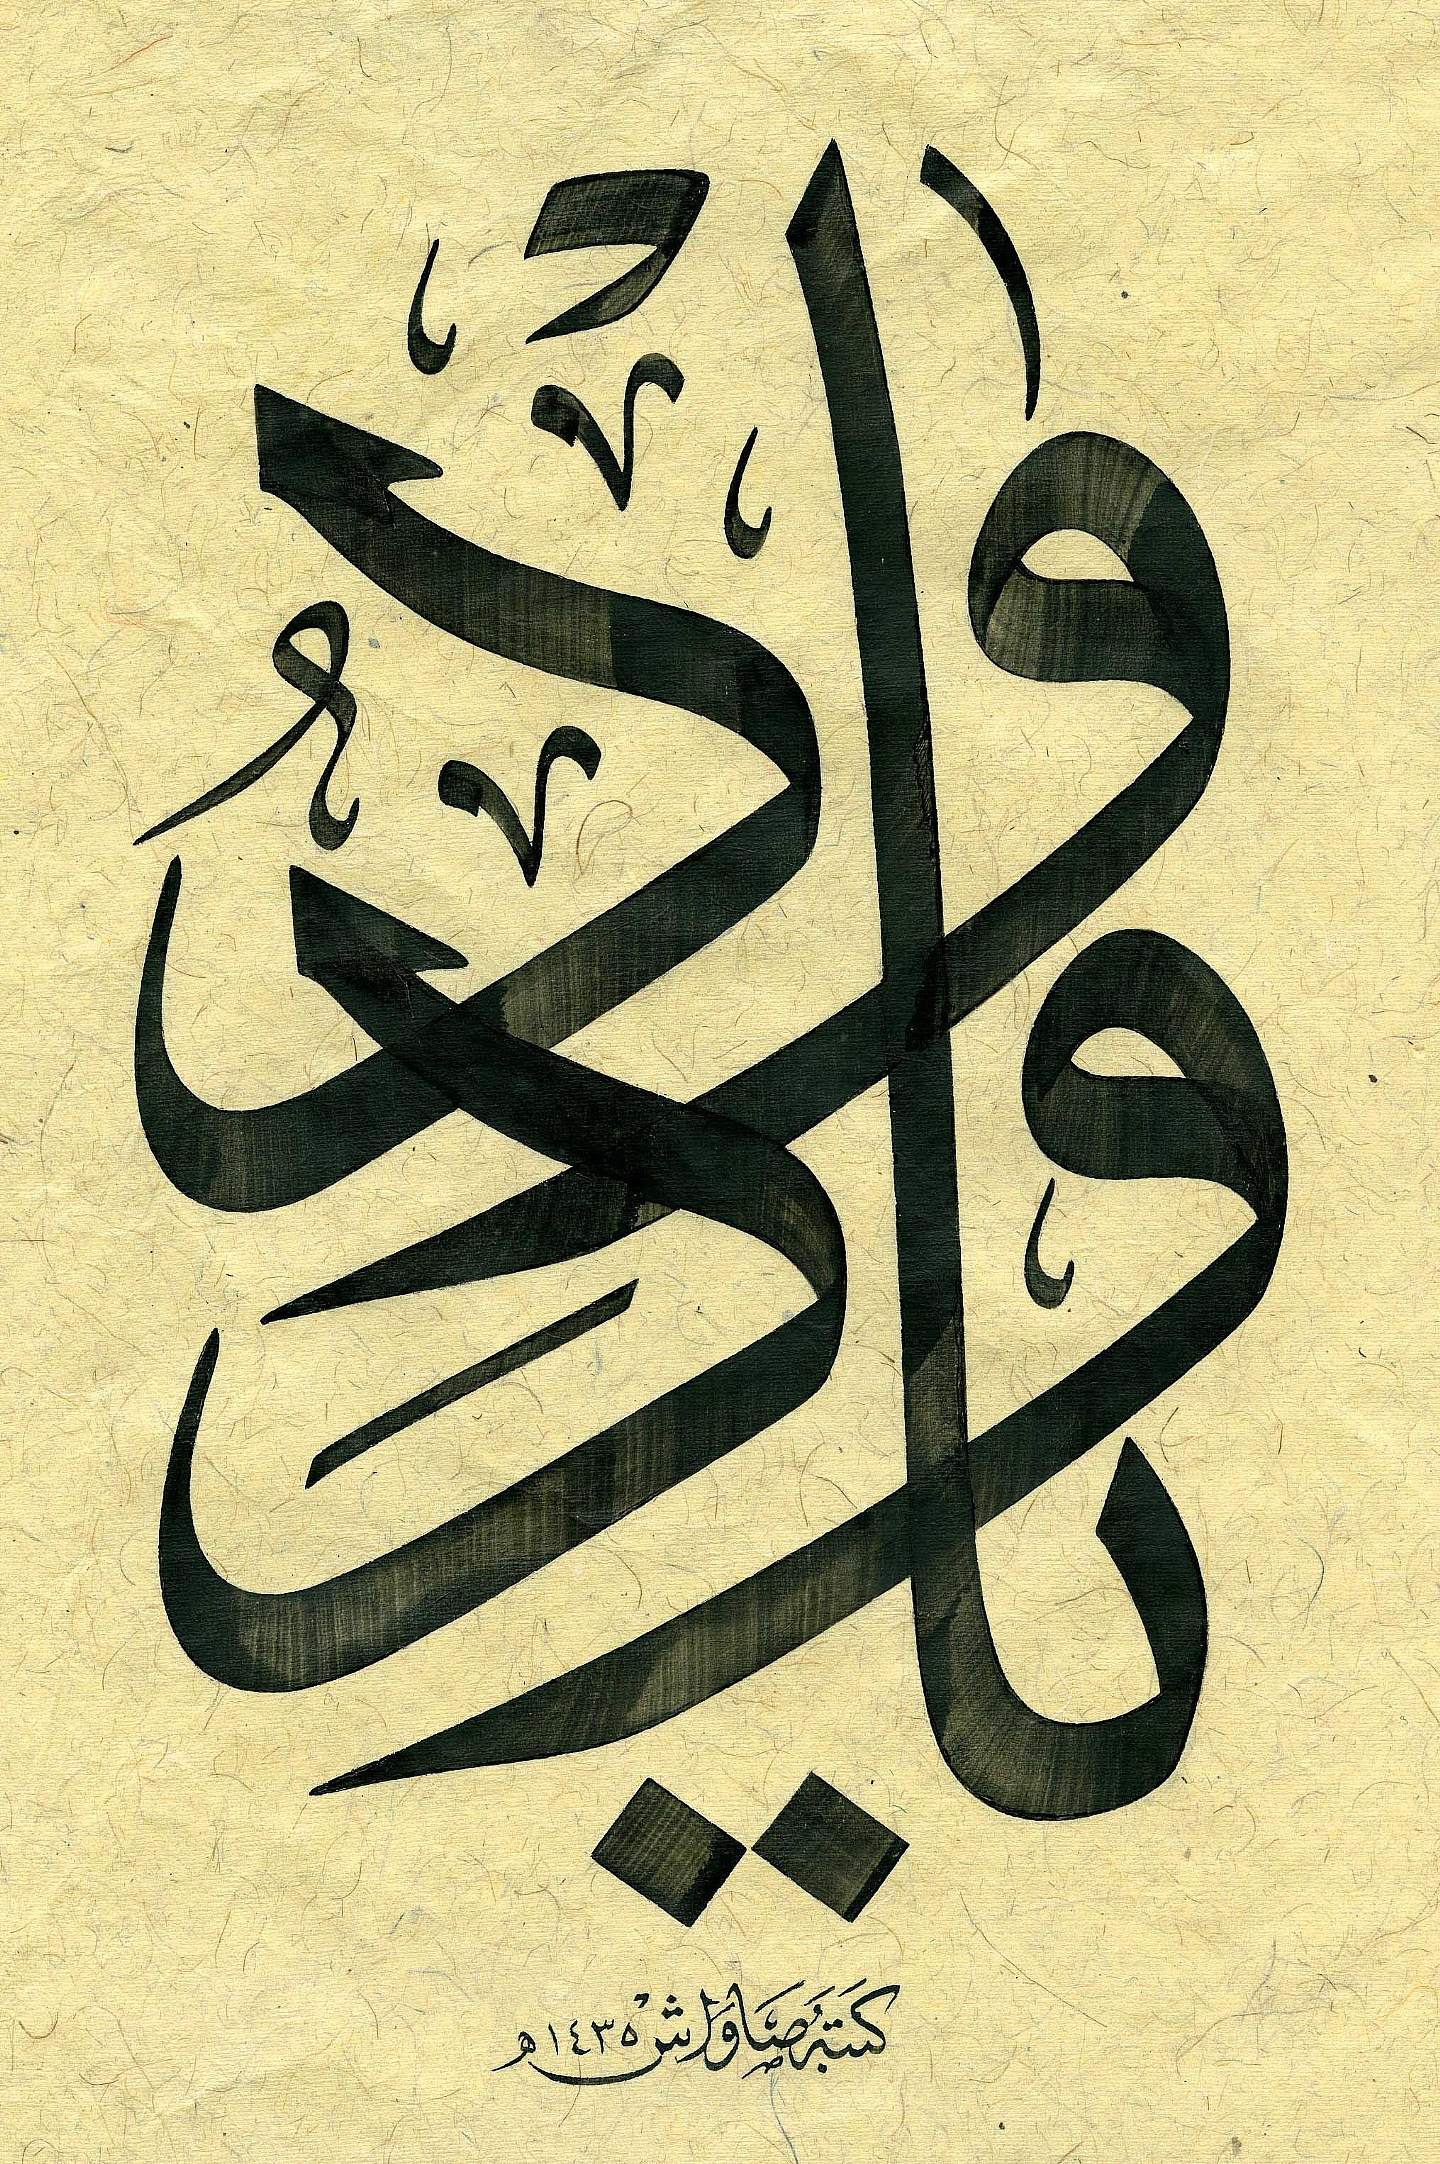 يا ودود
كتبه صاواش ١٤٣٥ هـ